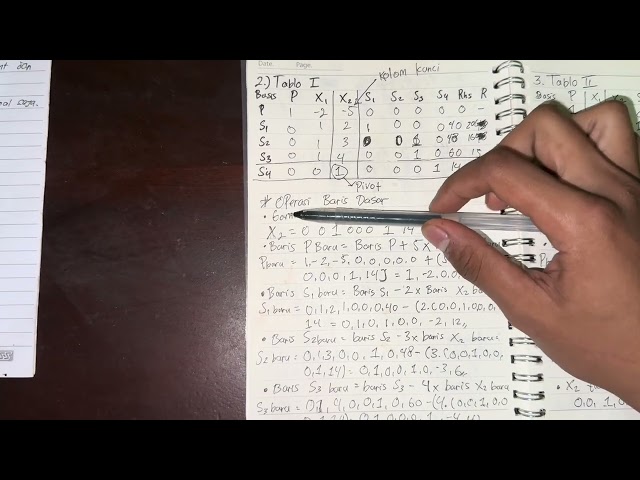 nt dan
nal saja.
Date. Page.
kolom kunci
2.) Tablo I
Basis P X1 X2 S1 S2 S3 S4 Rhs R
P 1 -2 -5 0 0 0 0 0 -
S1 0 1 2 1 0 0 0 40 20
S2 0 1 3 0 0 1 0 48 16
S3 0 1 4 0 0 1 0 60 15
S4 0 0 1 0 0 0 1 14
Pivot
* Operasi Baris Dasar
X2 = 0 0 1 0 0 0 1 14
• Baris P Baru = Baris P + 5 x
P baru = 1,-2,-5,0,0,0,0,0 + (5
0,0,0,1,14] = 1,-2,0,0
• Baris S1 baru = Baris S1 - 2x Baris X2 ba
S1 baru = 0,1,2,1,0,0,0,40 - (2.(0,0,1,0,0
14 = 0,1,0,1,0,0,-2,12
• Baris S2 baru = baris S2 - 3x baris X2 baru =
S2 baru = 0,1,3,0,0,1,0,48 - (3.(0,0,1,0,0
,0,1,14) = 0,1,0,0,1,0,-3,6
• Baris S3 baru = baris S3 - 4x baris X2 baru
S3 baru = 0,1,4,0,0,1,0,60 - (4.(0,0,1,0,0
3. Tablo II
Basis P X1 X2
• X2
0,0,1,0